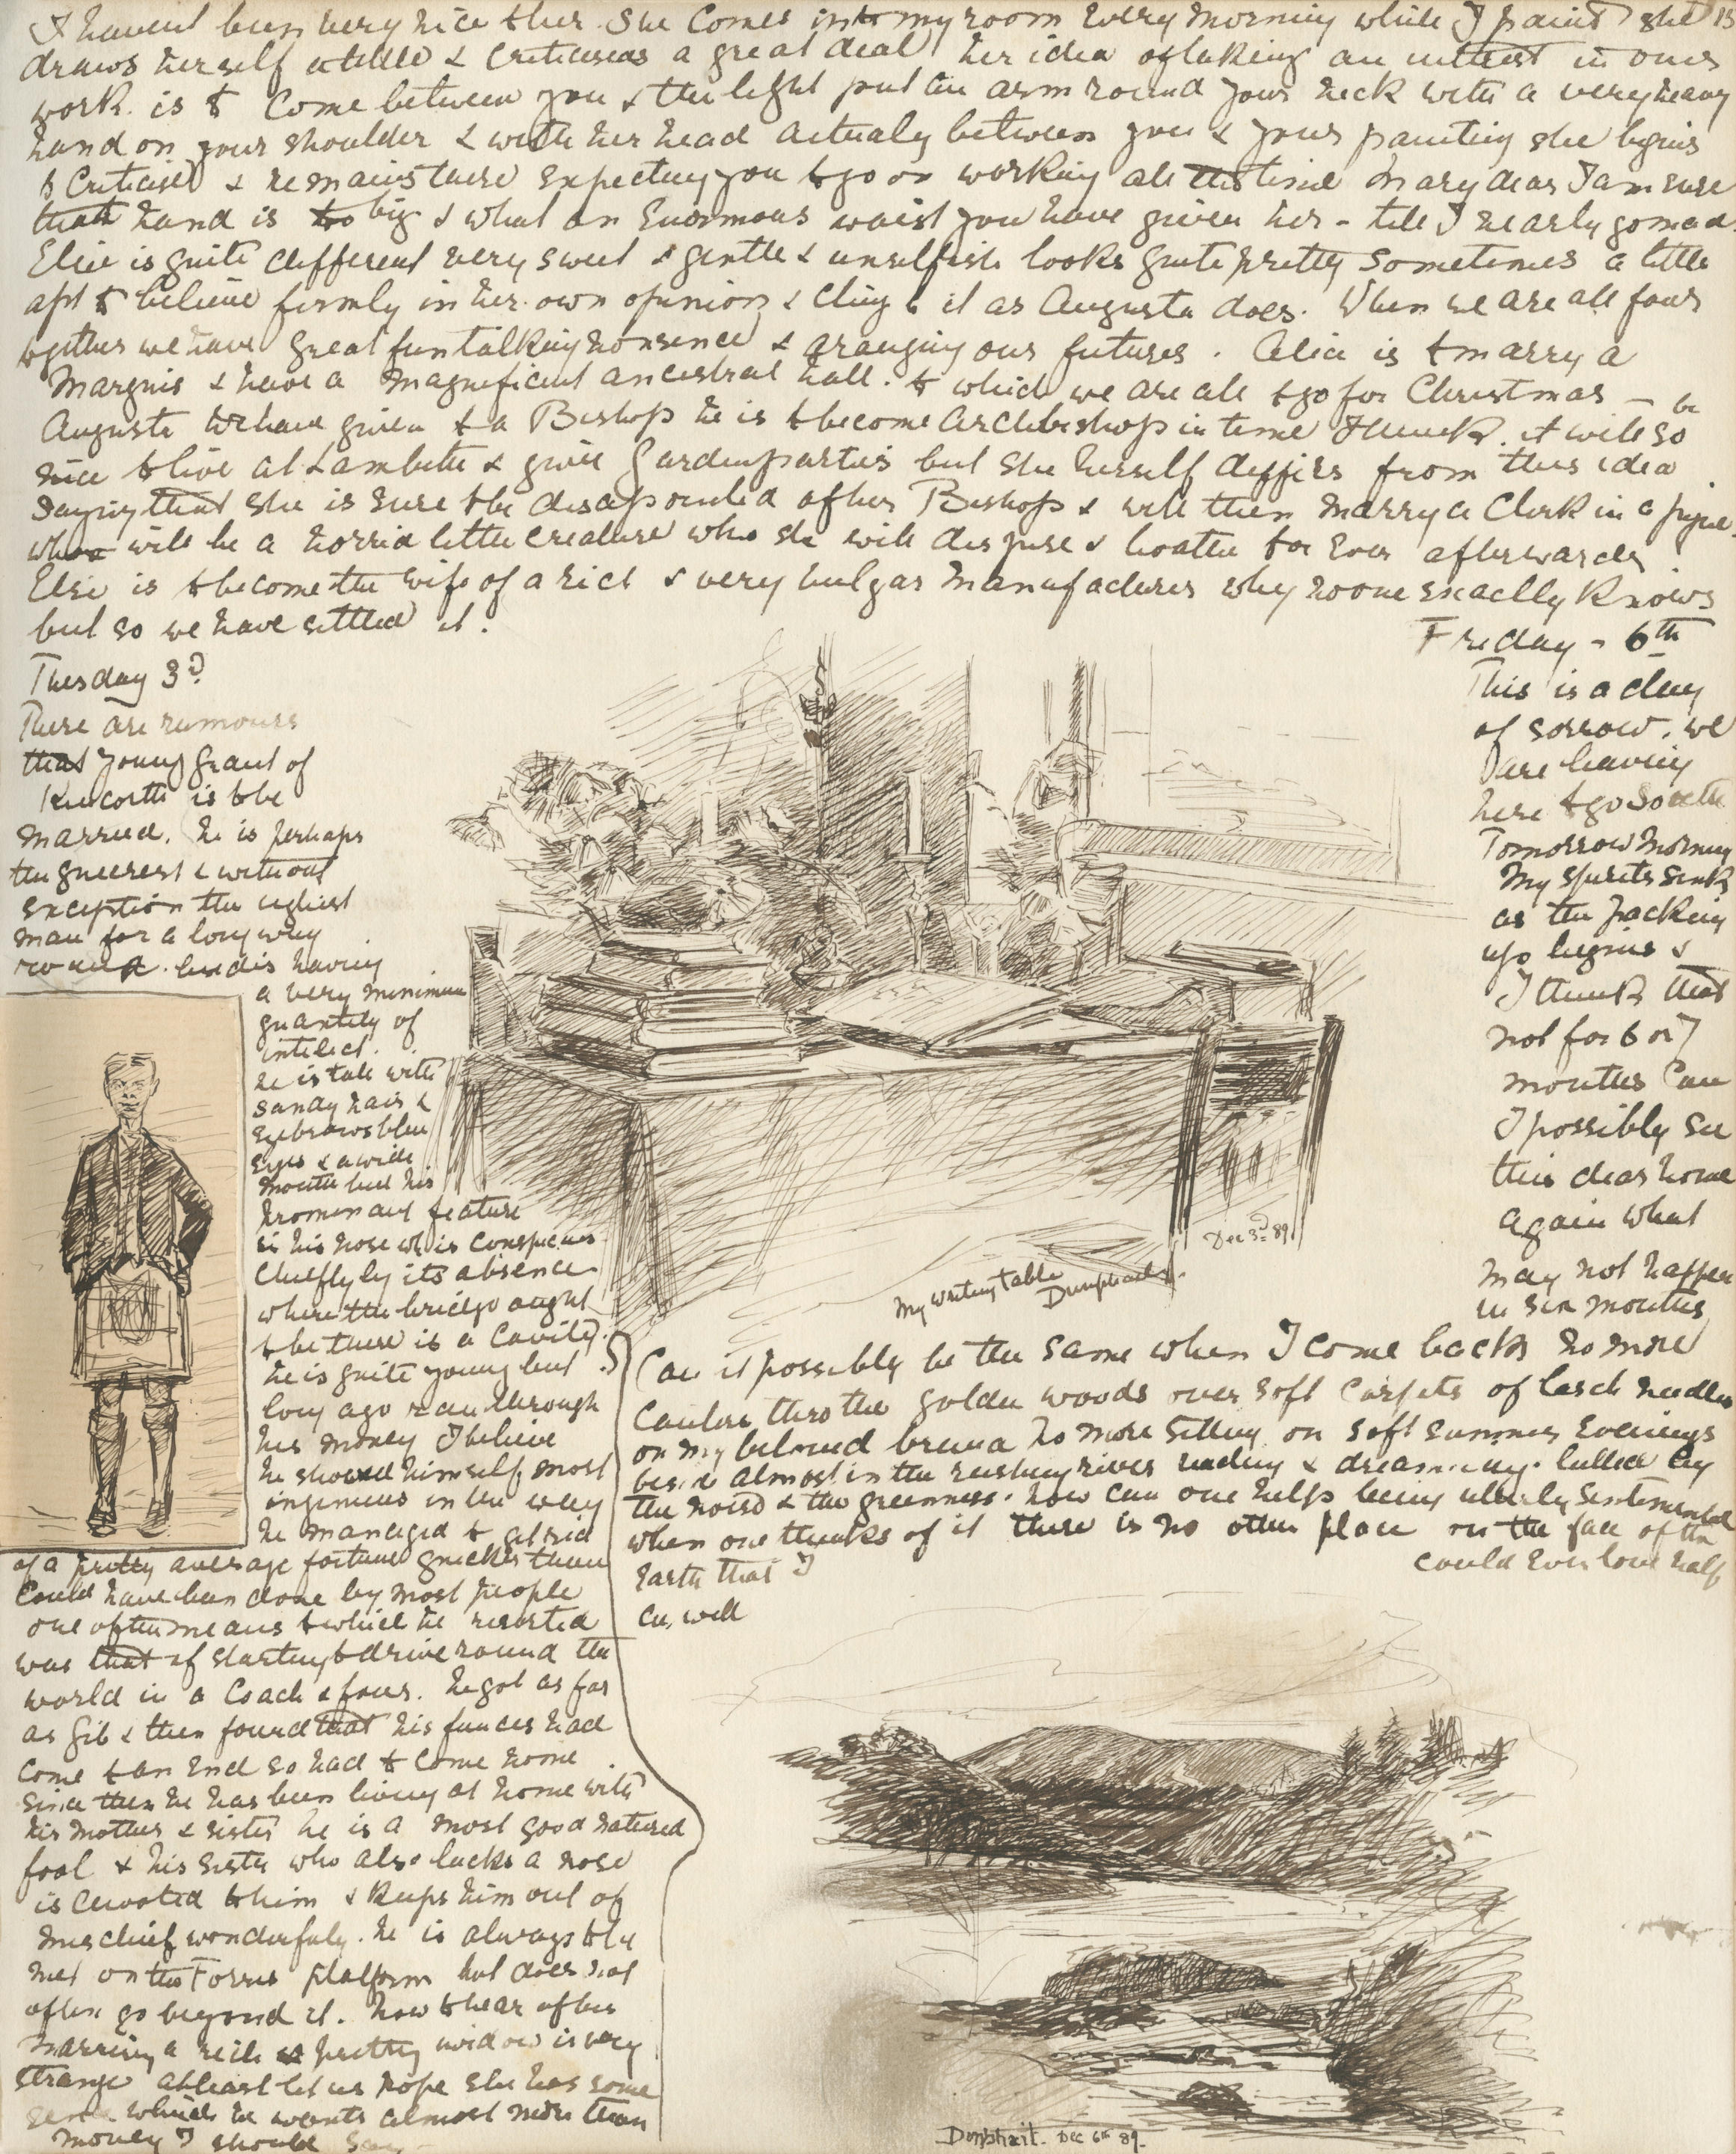 I havent been very nice to her. She comes into my room every morning while I paint she 15
draws herself a little & criticises a great deal her idea of taking an interest in ones
work. is to come between you & the light put an arm round your neck with a very heavy
hand on your shoulder & with her head actualy between you & your painting she begins
to criticise & remains there expecting you to go on working all the time Mary dear I am sure
that hand is too big & what an enormous waist you have given her - till I nearly go mad.
Elsie is quite different very sweet & gentle & unselfish looks quite pretty sometimes a little
apt to believe firmly in her own opinion & cling to it as Augusta does. When we are all four
together we have great fun talking nonsence & aranging our futures. Alia is to marry a
Marquis & have a magnificent ancestral hall. to which we are all to go for Christmas —
Augusta we have given to a Bishop he is to become Archbishop in time I think. it will be so
nice to live at Lambeth & give gardenparties but she herself differs from this idea
saying that she is sure to be disapointed of her Bishop & will then marry a Clerk in a
who will be a horrid little creature who she will despise & loathe for ever afterwards
Elsie is to become the wife of a rich & very vulgar manufacturer why no one exactly knows
but so we have settled it.
Tuesday 3d
There are rumours
that young Grant of
is to be
married. he is perhaps
the queerest & without
exception the ugliest
man for a long way
round. besides having
a very minimum
quantity of
intelect.
he is tall with
sandy hair &
eyebrows blue
eyes & a wide
mouth but his
prominant feature
is his nose wh is conspicuous
chiefly by its absence
where the bridge ought
to be there is a cavity.
he is quite young but
long ago ran through
his money I believe
he showed himself most
ingenious in the way
he managed to get rid
of a pretty average fortune quicker than
could have been done by most people
one of the means to which he resorted
was that of starting to drive round the
world in a coach & four. he got as far
as Gib & then found that his funces had
come to an end so had to come home
since then he has been living at home with
his mother & sister he is a most good natured
fool & his sister who also lacks a nose
is devoted to him & keeps him out of
mischief wonderfuly. he is always to be
met on the Forres platform but does not
often go beyond it. how to hear of his
marrying a rich & pretty widow is very
strange at least let us hope she has some
sense which he wants almost more than
money I should say —
My writing table
Dunphail.
Dec 3rd 89.
Friday - 6th
This is a day
of sorrow. we
are leaving
here to go South
Tomorrow morning
My spirits sink
as the packing
up begins &
I think that
not for 6 or 7
months can
I possibly see
this dear home
again what
may not happen
in six months
Can it possibly be the same when I come back no more
canters thro the golden woods over soft carpets of larch needles
on my beloved no more sitting on soft summer evenings
beside almost in the rushing river reading & dreaming. lulled by
the noise & the greenness. how can one help being utterly sentimental
when one thinks of it there is no other place on the face of the
Earth that I could ever love half
so well
Dunphail. Dec 6th 89.